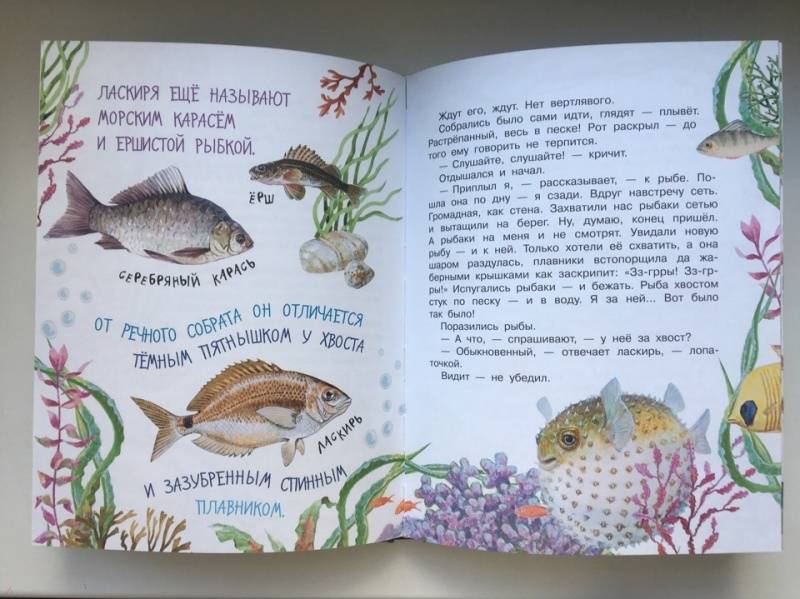 ЛАСКИРЯ ЕЩЁ НАЗЫВАЮТ
МОРСКИМ КАРАСЁМ
И ЕРШИСТОЙ РЫБКОЙ.
ЁРШ
СЕРЕБРЯНЫЙ КАРАСЬ
ОТ РЕЧНОГО СОБРАТА ОН ОТЛИЧАЕТСЯ
ТЁМНЫМ ПЯТНЫШКОМ У ХВОСТА
ЛАСКИРЬ
И ЗАЗУБРЕННЫМ СПИННЫМ
ПЛАВНИКОМ.
Ждут его, ждут. Нет вертлявого.
Собрались было сами идти, глядят — плывёт.
Растрёпанный, весь в песке! Рот раскрыл — до
того ему говорить не терпится.
— Слушайте, слушайте! — кричит.
Отдышался и начал.
— Приплыл я, — рассказывает, — к рыбе. По-
шла она по дну — я сзади. Вдруг навстречу сеть.
Громадная, как стена. Захватили нас рыбаки сетью
и вытащили на берег. Ну, думаю, конец пришёл.
А рыбаки на меня и не смотрят. Увидали новую
рыбу — и к ней. Только хотели её схватить, а она
шаром раздулась, плавники встопорщила да жа-
берными крышками как заскрипит: «Зз-грры! Зз-гр-
ры!» Испугались рыбаки — и бежать. Рыба хвостом
стук по песку — и в воду. Я за ней... Вот было
так было!
Поразились рыбы.
— А что, — спрашивают, — у неё за хвост?
— Обыкновенный, — отвечает ласкирь, — лопа-
точкой.
Видит — не убедил.